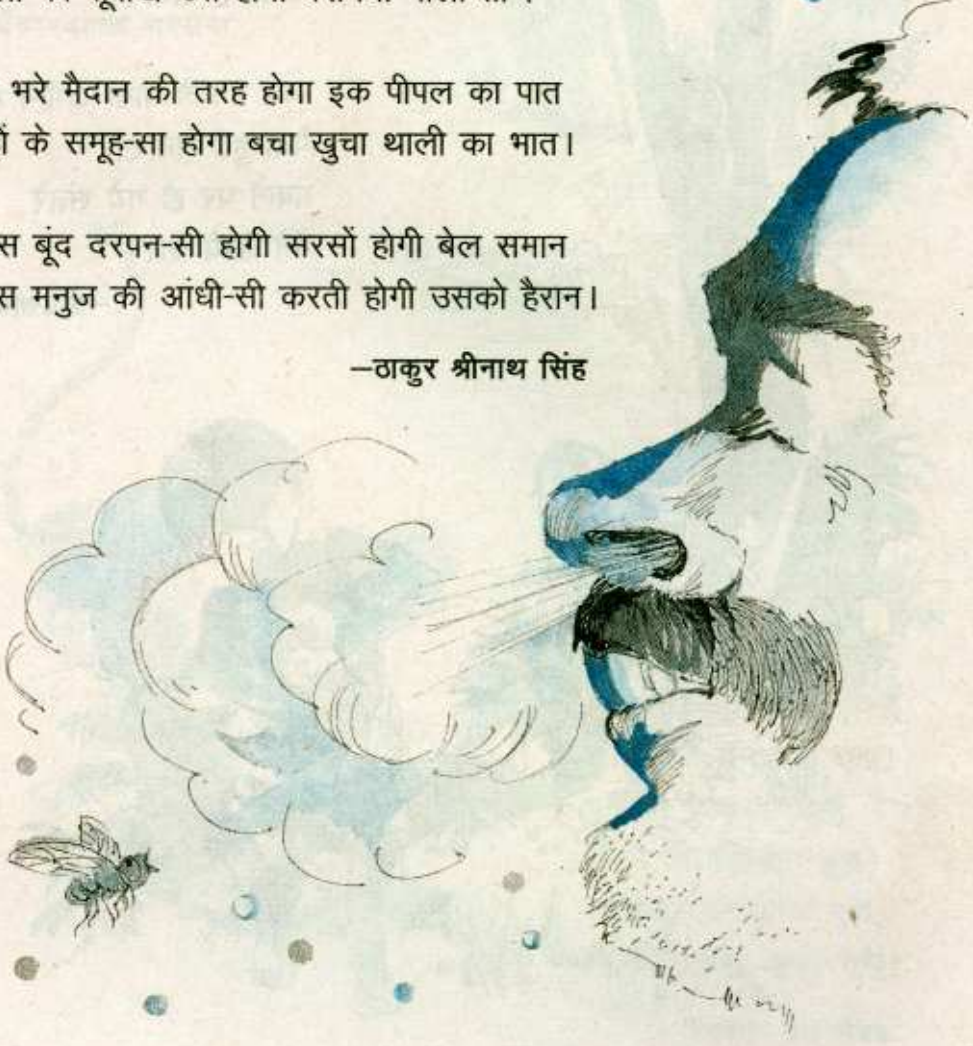 भरे मैदान की तरह होगा इक पीपल का पात
के समूह-सा होगा बचा खुचा थाली का भात।
बूंद दरपन-सी होगी सरसों होगी बेल समान
मनुज की आंधी-सी करती होगी उसको हैरान।
–ठाकुर श्रीनाथ सिंह